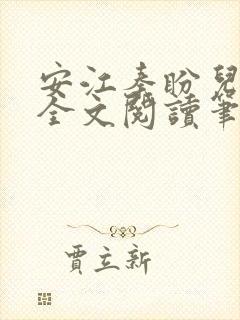 安江秦盼兒
全文閱讀筆
賈立新